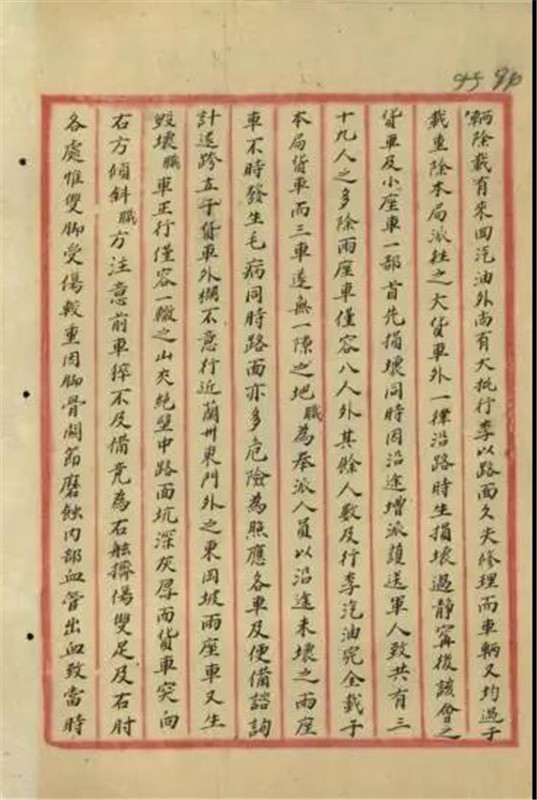 輛除載有來回汽油外尚有大批行李以路面久失修理而車輛又均過于
載重除本局派往之大貨車外一律沿路時生損壞過靜寗後該會之
貨車及小座車一部首先損壞同時因沿途增派護送軍人致共有三
十九人之多除兩座車僅容八人外其餘人數及行李汽油完全載于
本局貨車而三車遂無一隙之地職為奉派人員以沿途未壞之兩座
車不時發生毛病同時路面亦多危險為照應各車及便備諮詢
計遂跨立于貨車外側不意行近蘭州東門外之東岡坡兩座車又生
毀壞職車正行僅容一轍之山夾絶壁中路面坑深灰厚而貨車突向
右方傾斜職方注意前車猝不及備竟為石舷擠傷雙足及右肘
各處惟雙脚受傷較重因脚骨關節磨蝕內部血管出血致當時